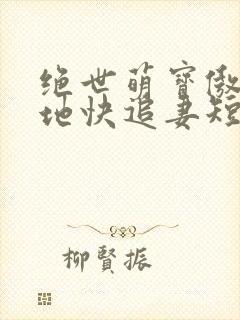 绝世萌寶傲
地快追妻短
柳賢振